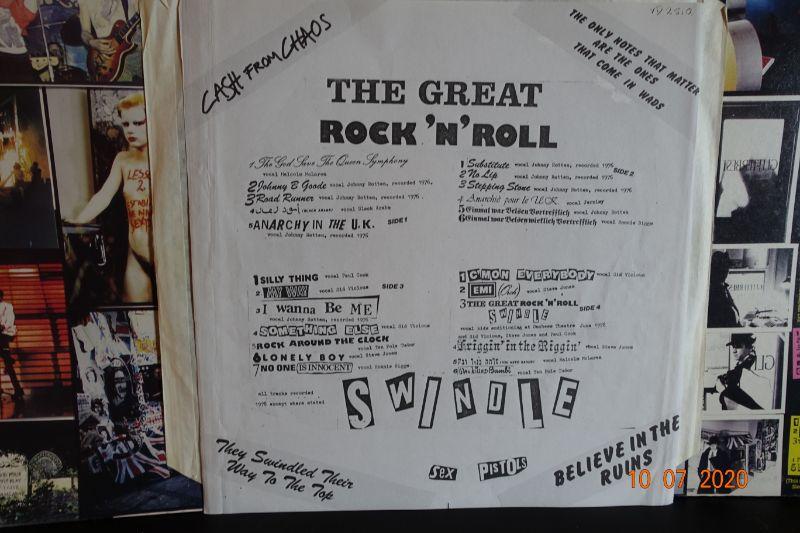 VD 2510
CASH FROM CHAOS
THE ONLY NOTES THAT MATTER
ARE THE ONES
THAT COME IN WADS
THE GREAT
ROCK 'N' ROLL
1 The God Save The Queen Symphony
vocal Malcolm McLaren
2 Johnny B Goode vocal Johnny Rotten, recorded 1976.
3 Road Runner vocal Johnny Rotten, recorded 1976.
4 (BLACK ARABS) vocal Black Arabs
5 ANARCHY IN THE U.K. SIDE 1
vocal Johnny Rotten, recorded 1976
1 Substitute vocal Johnny Rotten, recorded 1976 SIDE 2
2 No Lip vocal Johnny Rotten, recorded 1976
3 Stepping Stone vocal Johnny Rotten, recorded 1976
4 Anarchie pour le U.K. vocal Jerzimy
5 Einmal war Belsen Vortrefflich vocal Johnny Rotten
6 Einmal war Belsen wirklich Vortrefflich vocal Ronnie Biggs
1 SILLY THING vocal Paul Cook
2 MY WAY vocal Sid Vicious SIDE 3
3 I wanna Be ME
vocal Johnny Rotten, recorded 1976
4 SOMETHING ELSE vocal Sid Vicious
5 ROCK AROUND THE CLOCK
vocal Ten Pole Tudor
6 LONELY BOY vocal Steve Jones
7 NO ONE IS INNOCENT vocal Ronnie Biggs
All tracks recorded
1978 except where stated
1 C'MON EVERYBODY vocal Sid Vicious
2 EMI (Orch) vocal Steve Jones
3 THE GREAT ROCK 'N' ROLL
SWINDLE SIDE 4
vocal kids auditioning at Duchess Theatre June 1978
with Sid Vicious, Steve Jones and Paul Cook
4 Friggin' in the Riggin' vocal Steve Jones
5 vocal Malcolm McLaren
6 Who Killed Bambi vocal Ten Pole Tudor
SWINDLE
They Swindled Their
Way To The Top
SEX PISTOLS
BELIEVE IN THE
RUINS
10 07 2020